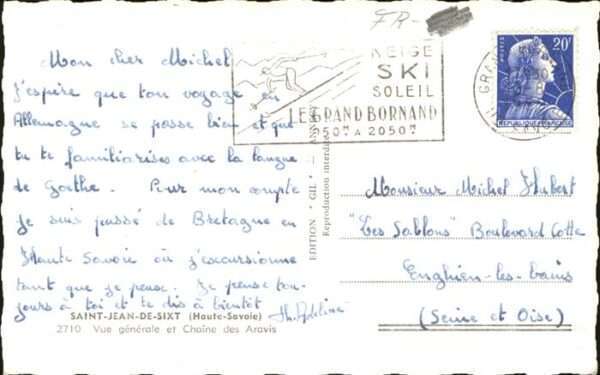 FR-
Mon cher Michel
J'espère que ton voyage en
Allemagne se passe bien et que
tu te familiarises avec la langue
de Goethe. Pour mon compte
je suis passé de Bretagne en
Haute Savoie où j'excursionne
tant que je peux. Je pense tou-
jours à toi et te dis à bientôt
SAINT-JEAN-DE-SIXT (Haute-Savoie)
2710 Vue générale et Chaîne des Aravis
EDITION "GIL"
Reproduction interdite
NEIGE
SKI
SOLEIL
LE GRAND BORNAND
950m A 2050m
20F
POSTES
REPUBLIQUE FRANÇAISE
Monsieur Michel Hubert
"Les Sablons" Boulevard Cotte
Enghien-les-bains
(Seine et Oise)